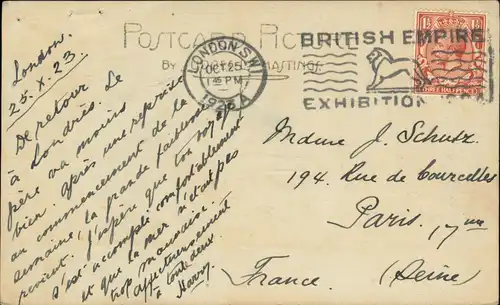 POSTCARD PICTURE
BY JUDGES LTD HASTINGS
LONDON.S.W.1
OCT 25
PM
1923
A
BRITISH EMPIRE
EXHIBITION
1½ 1½
THREE HALFPENCE
London.
25.X.23.
De retour de
à Londres. Le
père va moins
bien. Après une reprise
au commencement de la
semaine, la grande faiblesse
revient. J'espère que ton voyage
s'est accompli comfortablement
et que la mer n'était pas
trop mauvaise.
affectueusement
à toutes deux.
Harry.
Mdme J. Schutz.
194, Rue de Courcelles
Paris. 17me
(Seine)
France.